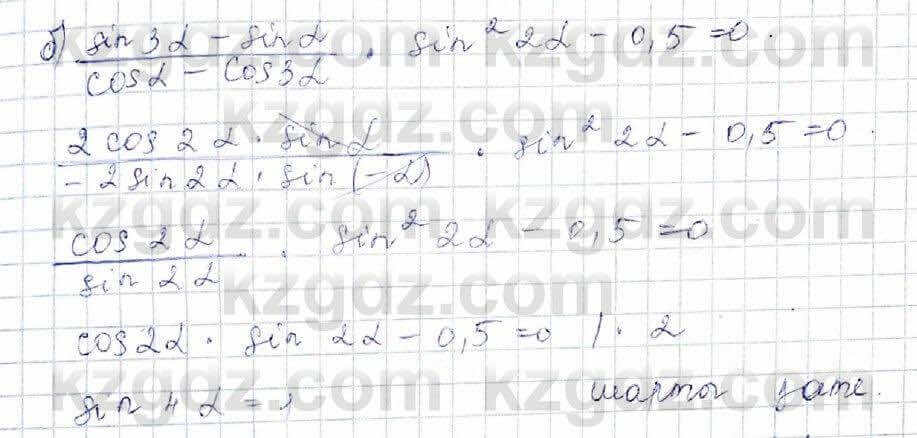 б) (sin 3α − sin α)/(cos α − cos 3α) · sin² 2α − 0,5 = 0.
(2 cos 2α · sin α)/(−2 sin 2α · sin(−α)) · sin² 2α − 0,5 = 0.
(cos 2α)/(sin 2α) · sin² 2α − 0,5 = 0
cos 2α · sin 2α − 0,5 = 0 | · 2
sin 4α = 1 шарты
kzgdz.com kzgdz.com
kzgdz.com kzgdz.com
kzgdz.com